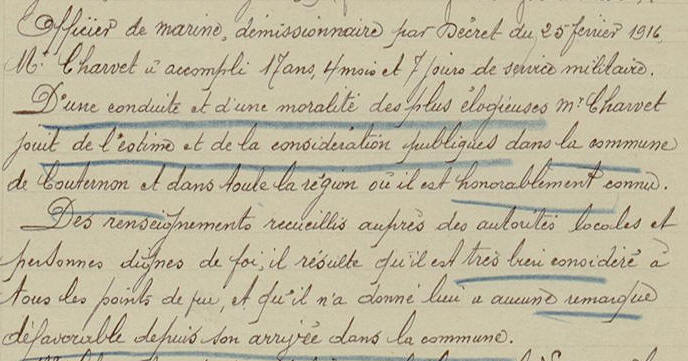 Officier de marine, démissionnaire par Décret du 25 février 1916,
Mr Charvet a accompli 17 ans, 4 mois et 7 jours de service militaire.
D'une conduite et d'une moralité des plus élogieuses Mr Charvet
jouit de l'estime et de la considération publiques dans la commune
de Couternon et dans toute la région où il est honorablement connu.
Des renseignements recueillis auprès des autorités locales et
personnes dignes de foi, il résulte qu'il est très bien considéré à
tous les points de vue, et qu'il n'a donné lieu a aucune remarque
défavorable depuis son arrivée dans la commune.